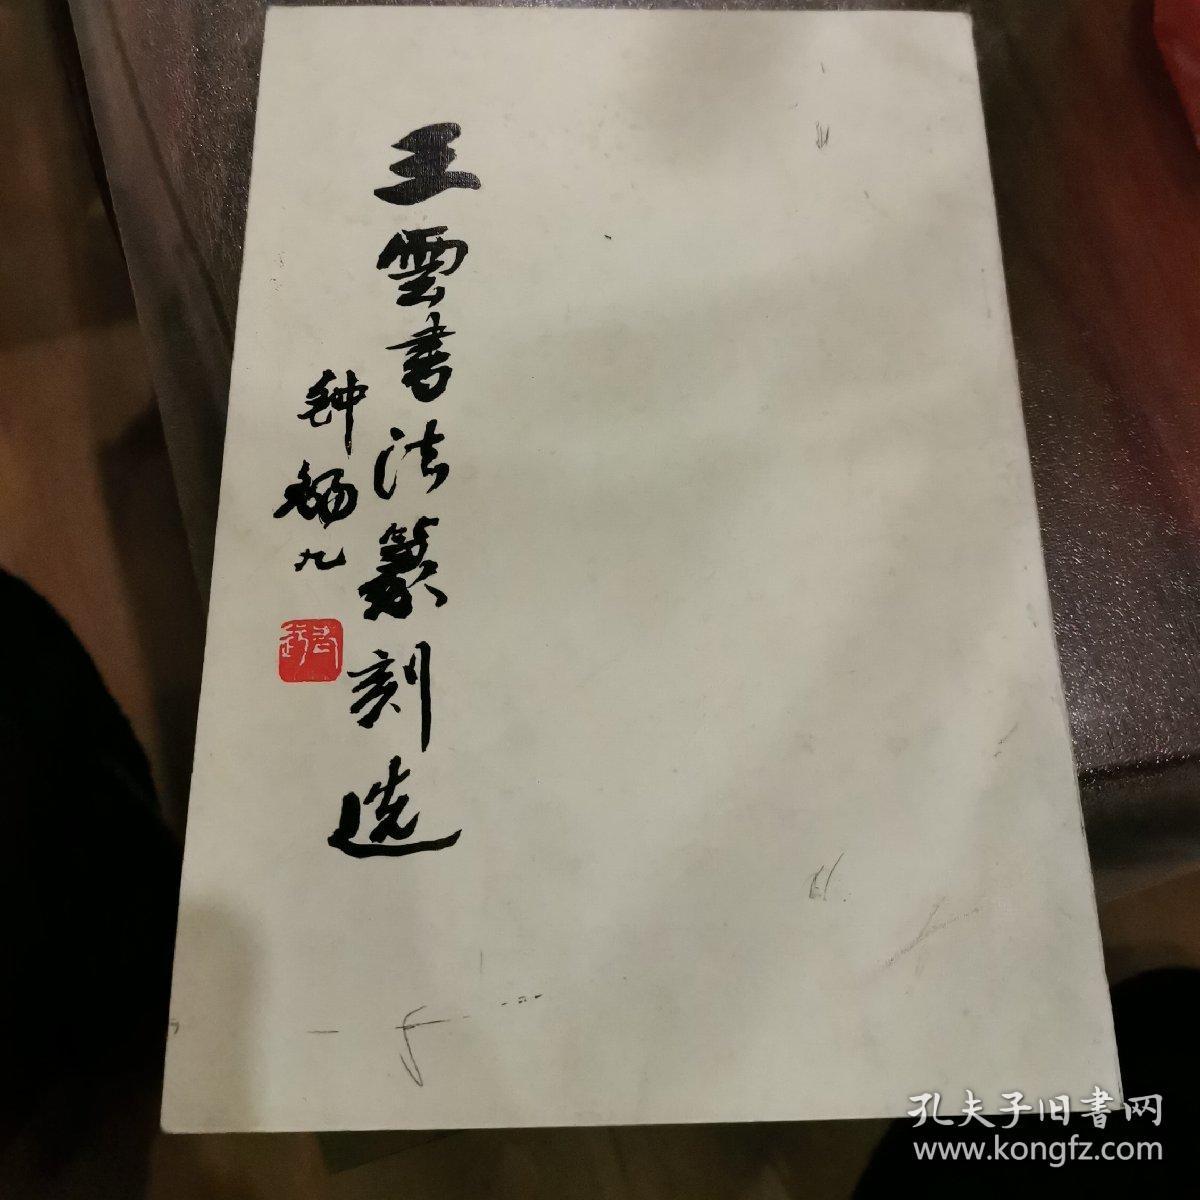 王雲书法篆刻选
钟鍚九
孔夫子旧書网
www.kongfz.com